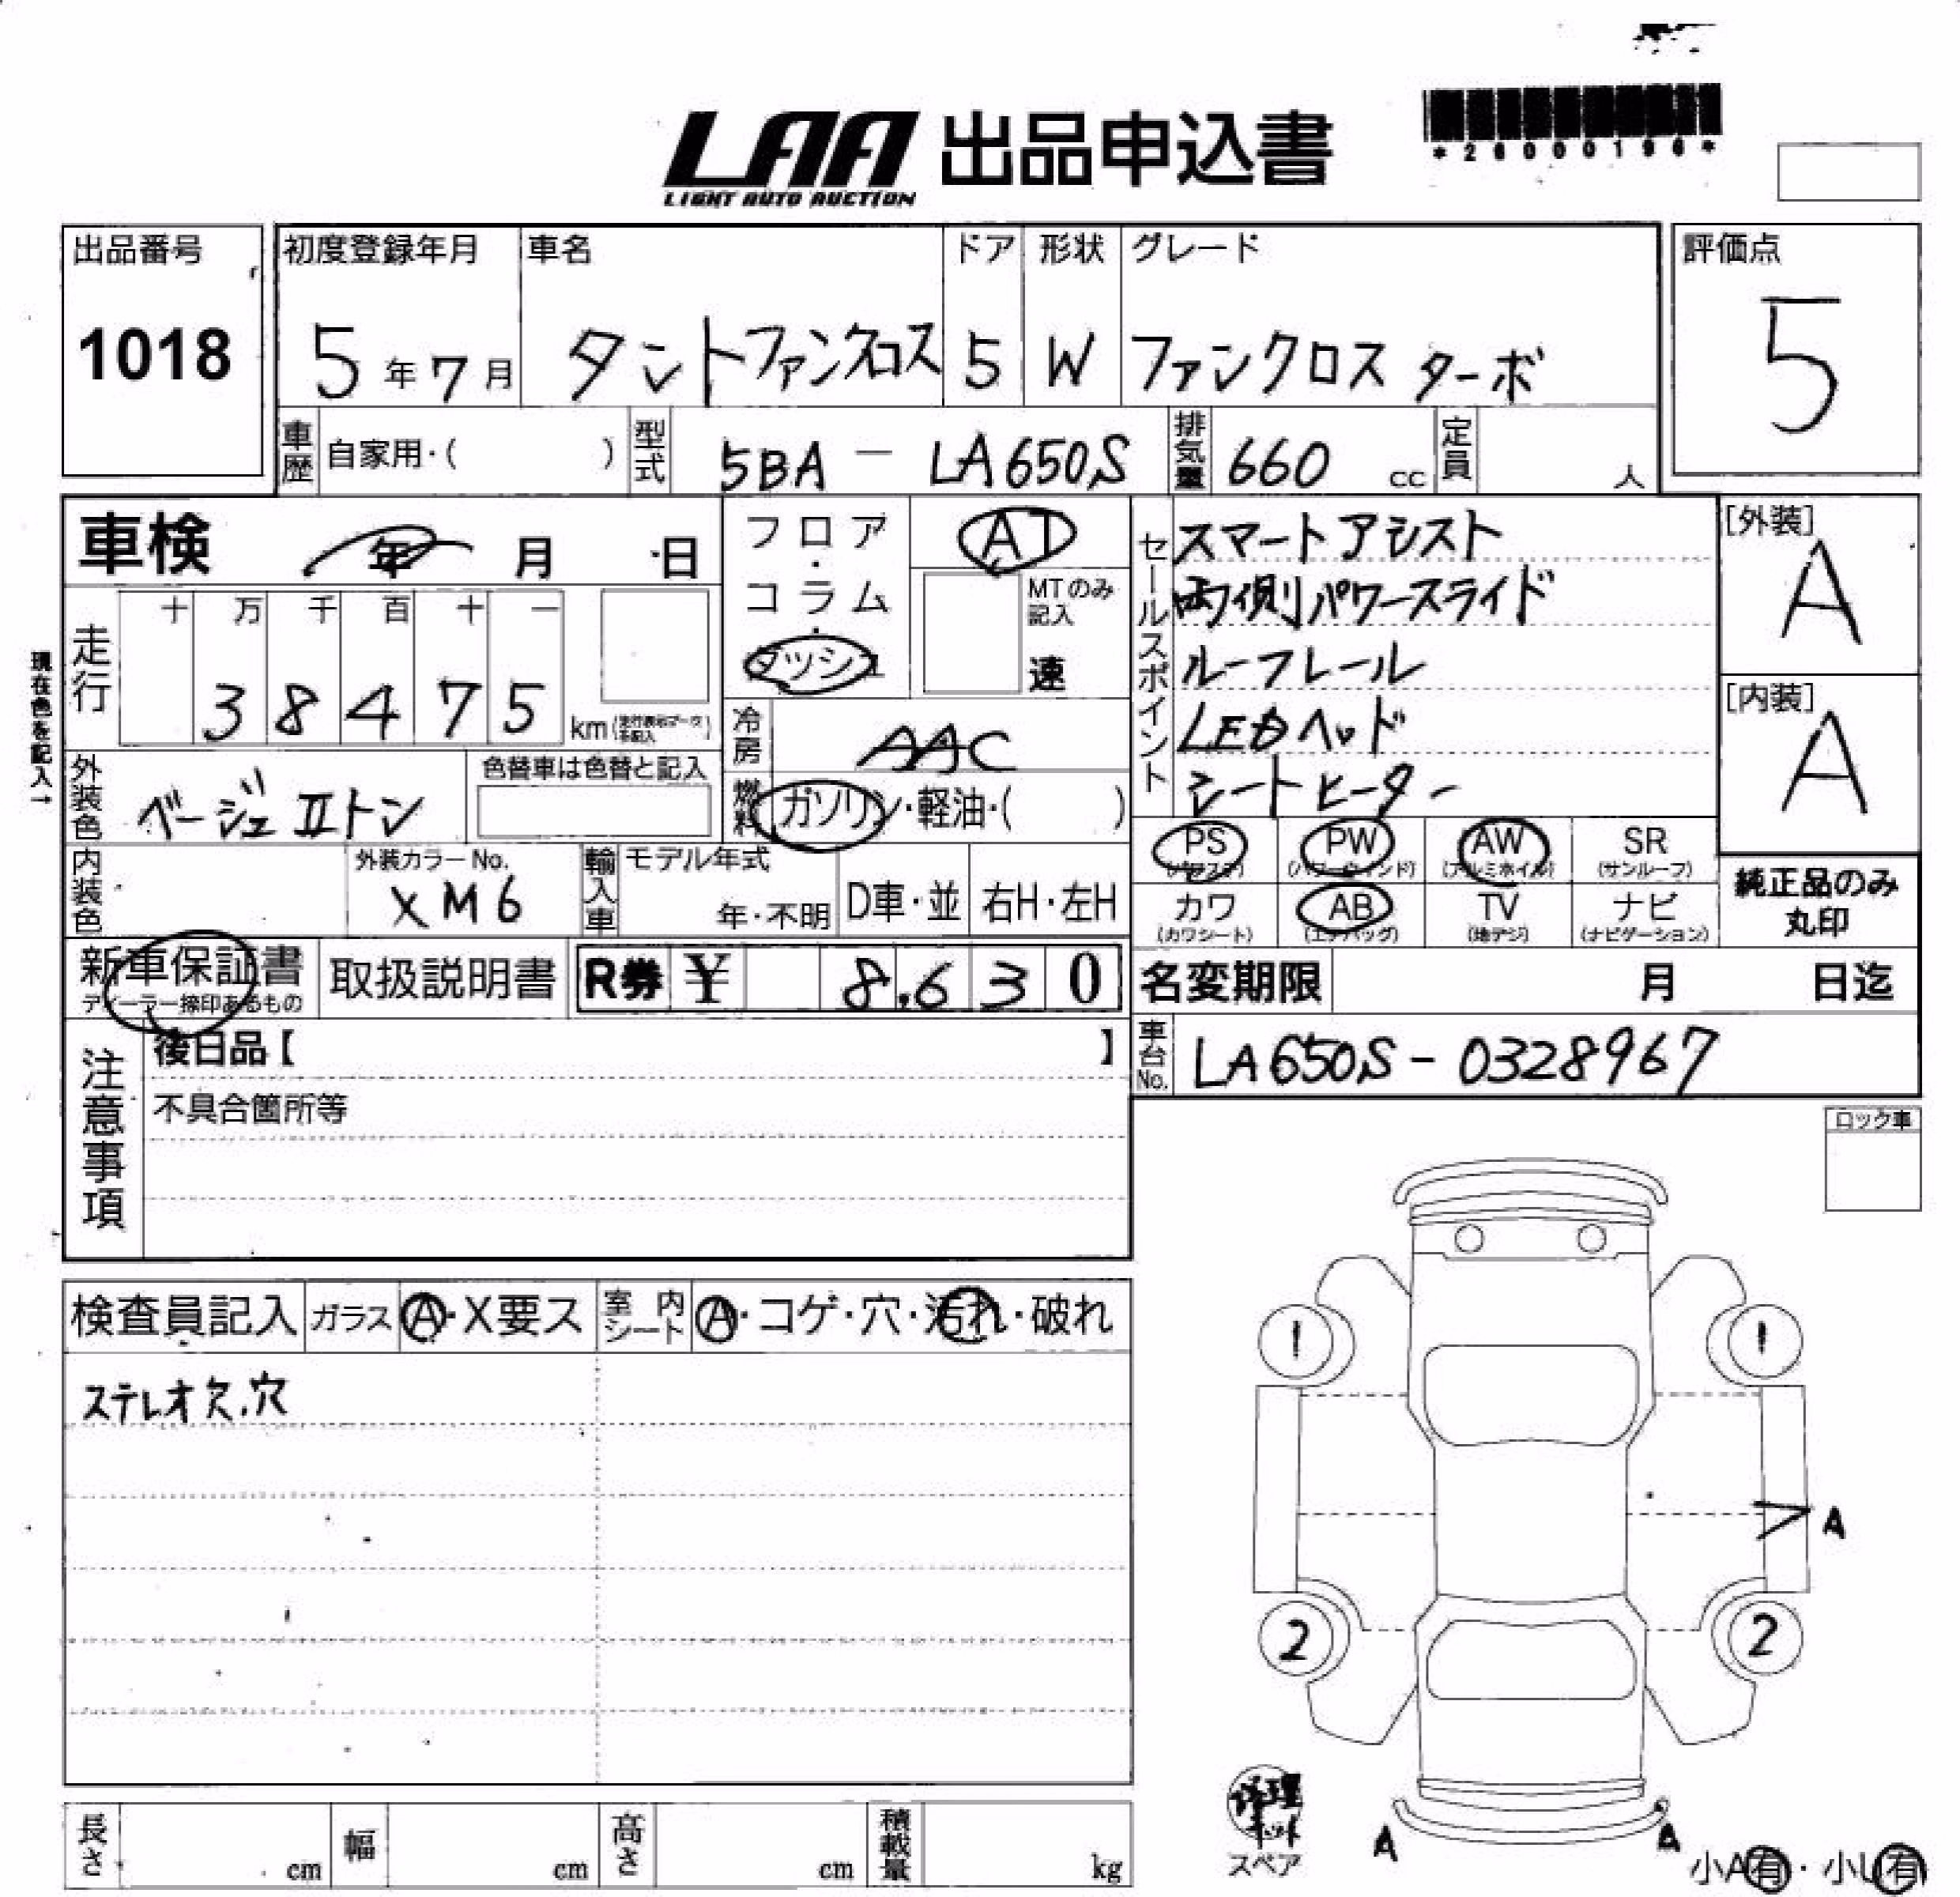 LAA 出品申込書
LIGHT AUTO AUCTION
*26000196*
出品番号
1018
初度登録年月
5年7月
車名
タントファンクロス
ドア
5
形状
W
グレード
ファンクロス ターボ
評価点
5
車歴 自家用・( )
型式 5BA - LA650S
排気量 660 cc
定員 人
車検 年 月 日
フロア・コラム・ダッシュ
AT
MTのみ記入
速
セールスポイント
スマートアシスト
両側パワースライド
ルーフレール
LEDヘッド
シートヒーター
[外装]
A
[内装]
A
現在色を記入→
走行
十 万 千 百 十 一
3 8 4 7 5 km
(走行表示データを記入)
冷房 AAC
外装色 ベージュⅡトン
色替車は色替と記入
燃料 ガソリン・軽油・( )
内装色
外装カラーNo.
XM6
輸入車
モデル年式
年・不明
D車・並
右H・左H
PS (パワステ)
PW (パワーウィンド)
AW (アルミホイル)
SR (サンルーフ)
カワ (カワシート)
AB (エアバッグ)
TV (地デジ)
ナビ (ナビゲーション)
純正品のみ
丸印
新車保証書
ディーラー捺印あるもの
取扱説明書
R券 ¥ 8,630
名変期限 月 日迄
車台No. LA650S-0328967
注意事項
後日品【 】
不具合箇所等
ロック車
検査員記入
ガラス Ⓐ・X要ス
室内シート Ⓐ・コゲ・穴・汚れ・破れ
ステレオ欠.穴
1
1
A
2
2
修理キット
スペア
A
A
小A有・小U有
長さ cm
幅 cm
高さ cm
積載量 kg